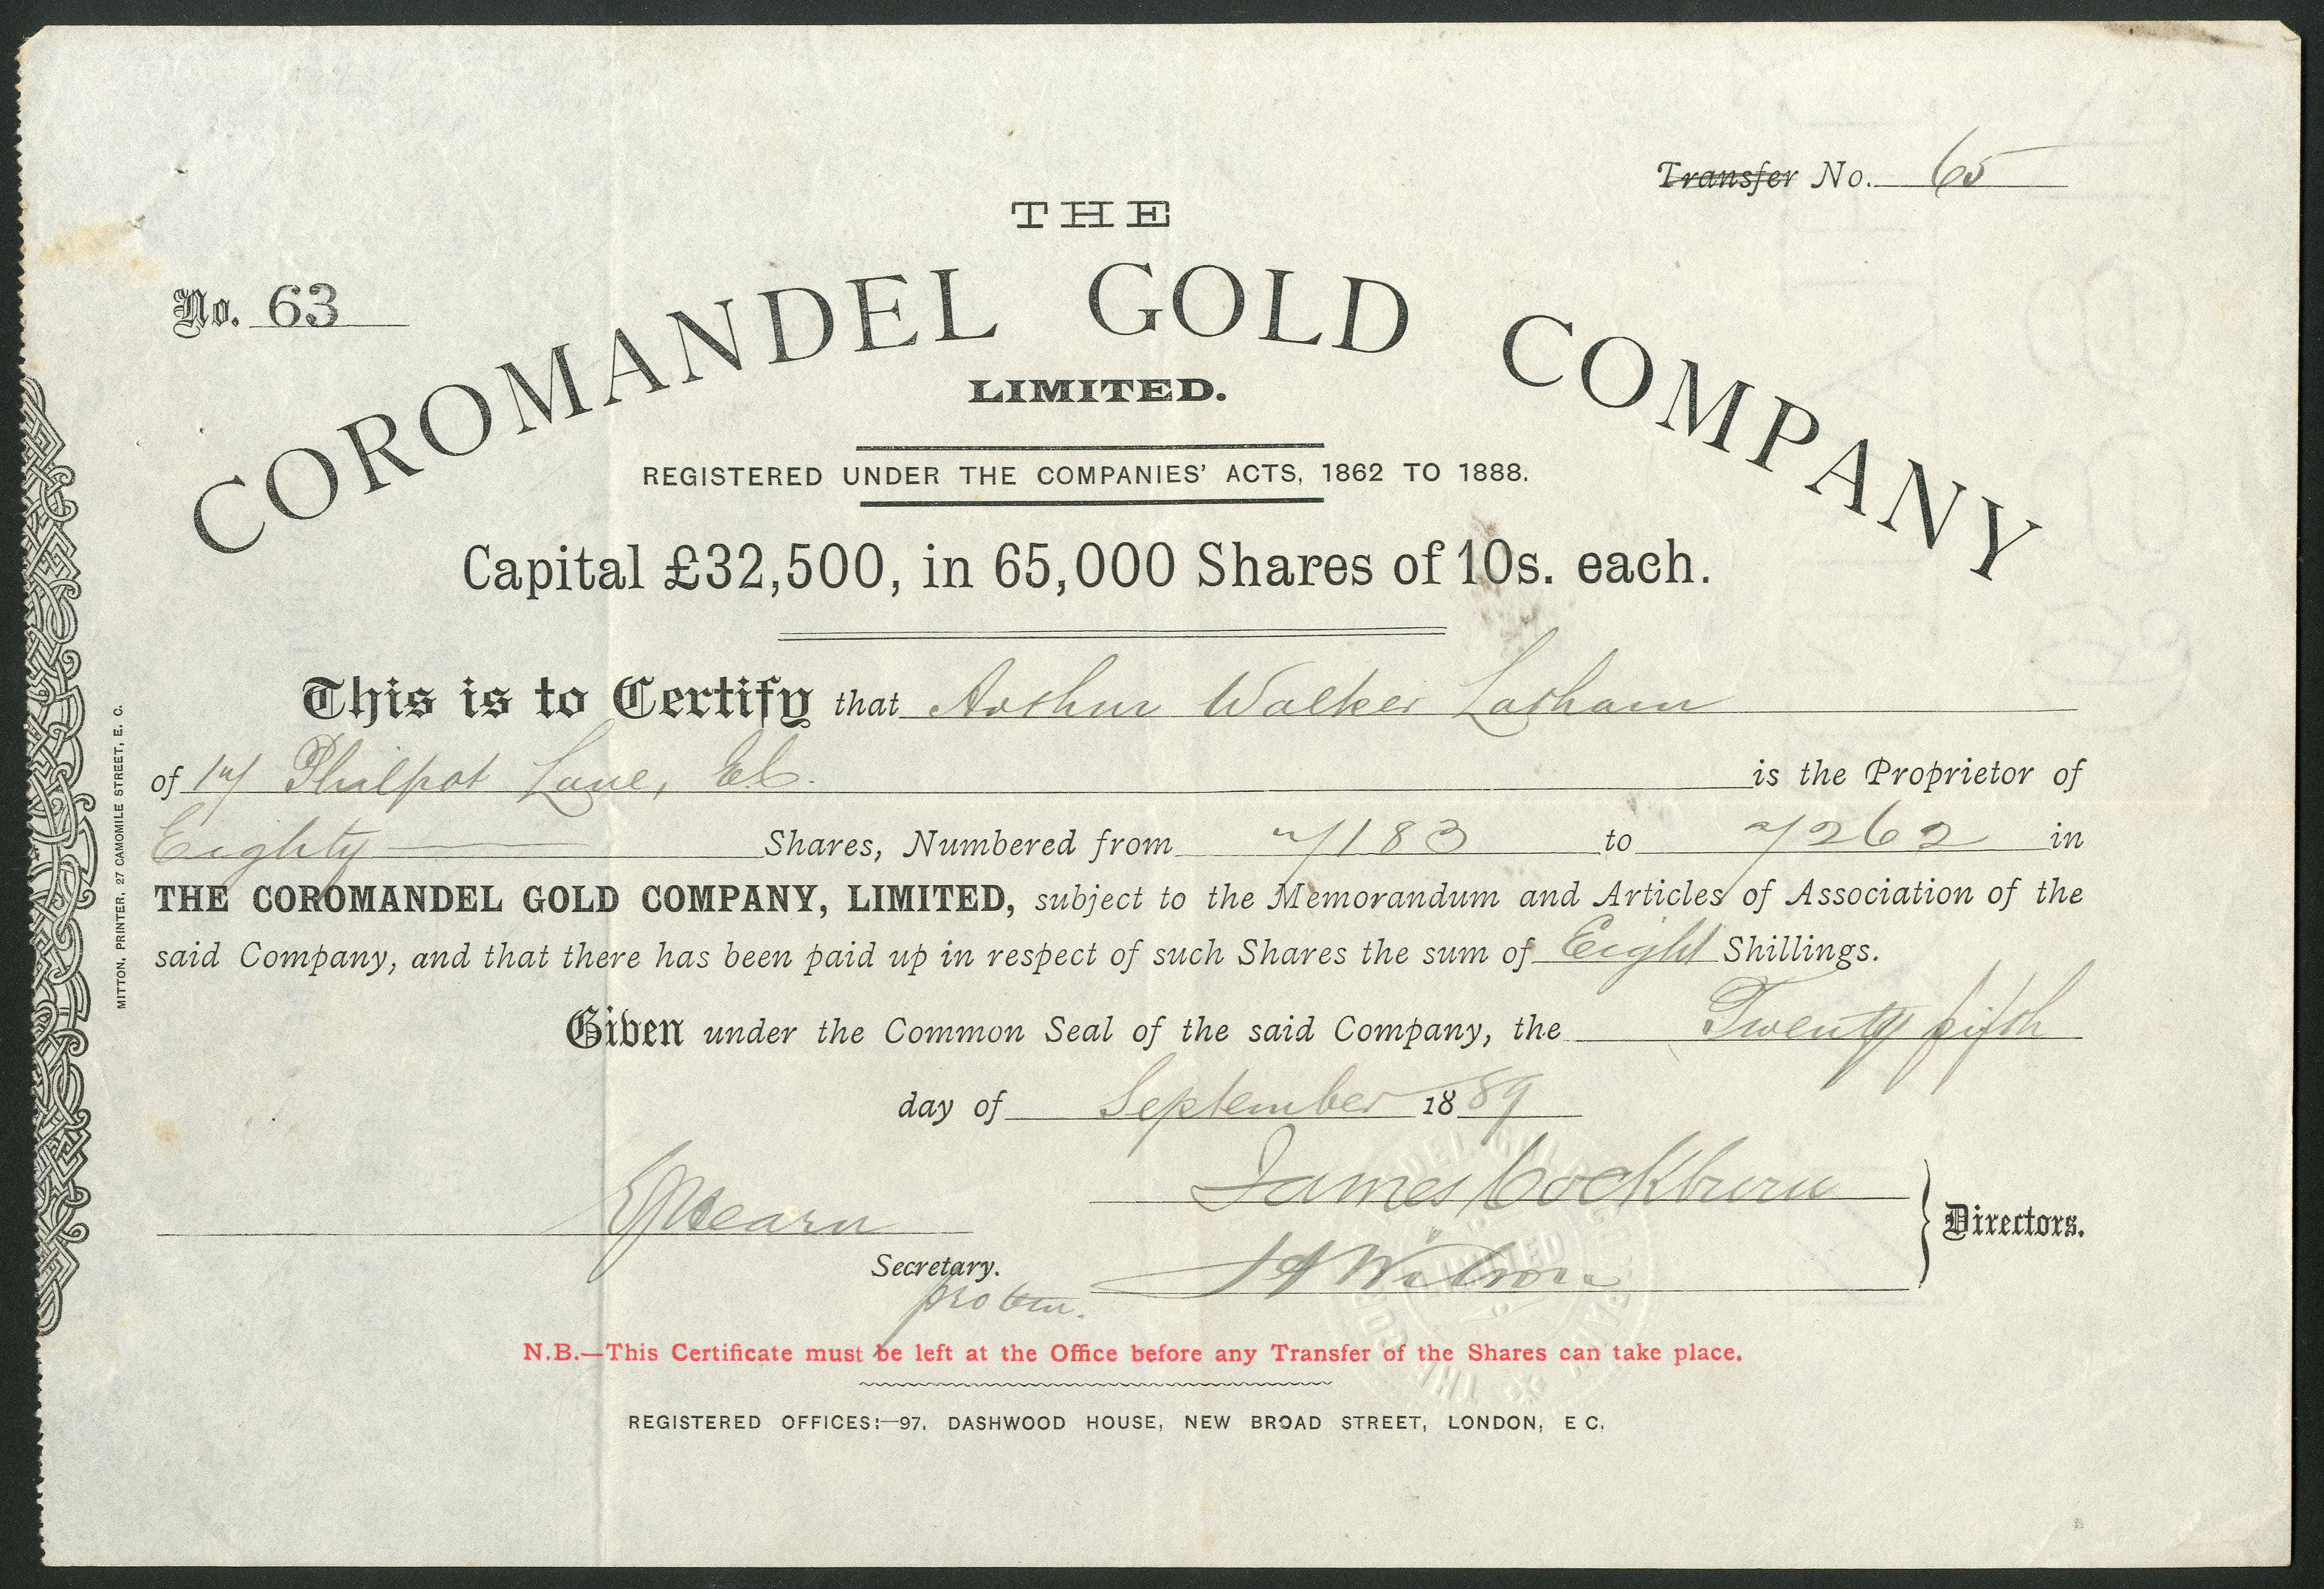 Transfer No. 65
THE
No. 63
COROMANDEL GOLD COMPANY
LIMITED.
REGISTERED UNDER THE COMPANIES' ACTS, 1862 TO 1888.
Capital £32,500, in 65,000 Shares of 10s. each.
This is to Certify that Arthur Walker Latham
of 17 Philpot Lane, EC. is the Proprietor of
Eighty Shares, Numbered from 7183 to 7262 in
THE COROMANDEL GOLD COMPANY, LIMITED, subject to the Memorandum and Articles of Association of the
said Company, and that there has been paid up in respect of such Shares the sum of Eight Shillings.
Given under the Common Seal of the said Company, the Twenty fifth
day of September 1889
James Cockburn
Directors.
Secretary.
pro tem.
N.B.—This Certificate must be left at the Office before any Transfer of the Shares can take place.
REGISTERED OFFICES:—97, DASHWOOD HOUSE, NEW BROAD STREET, LONDON, E C.
MITTON, PRINTER, 27 CAMOMILE STREET, E. C.